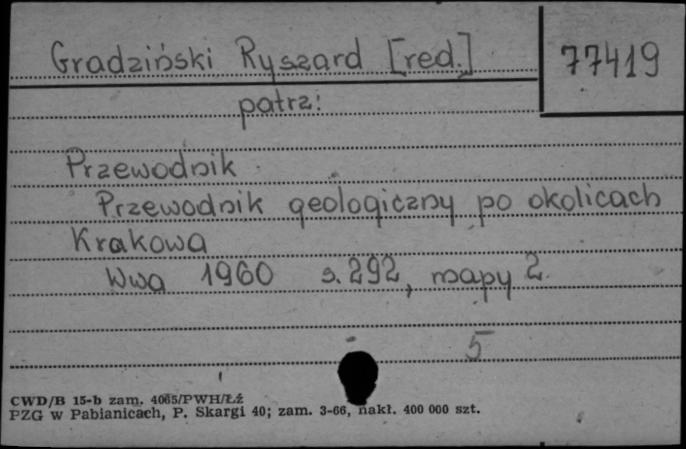 Gradziński Ryszard [red.]
77419
patrz:
Przewodnik
Przewodnik geologiczny po okolicach
Krakowa
Wwa 1960 s. 292, mapy 2.
5
CWD/B 15-b zam. 4065/PWH/Łź
PZG w Pabianicach, P. Skargi 40; zam. 3-66, nakł. 400 000 szt.